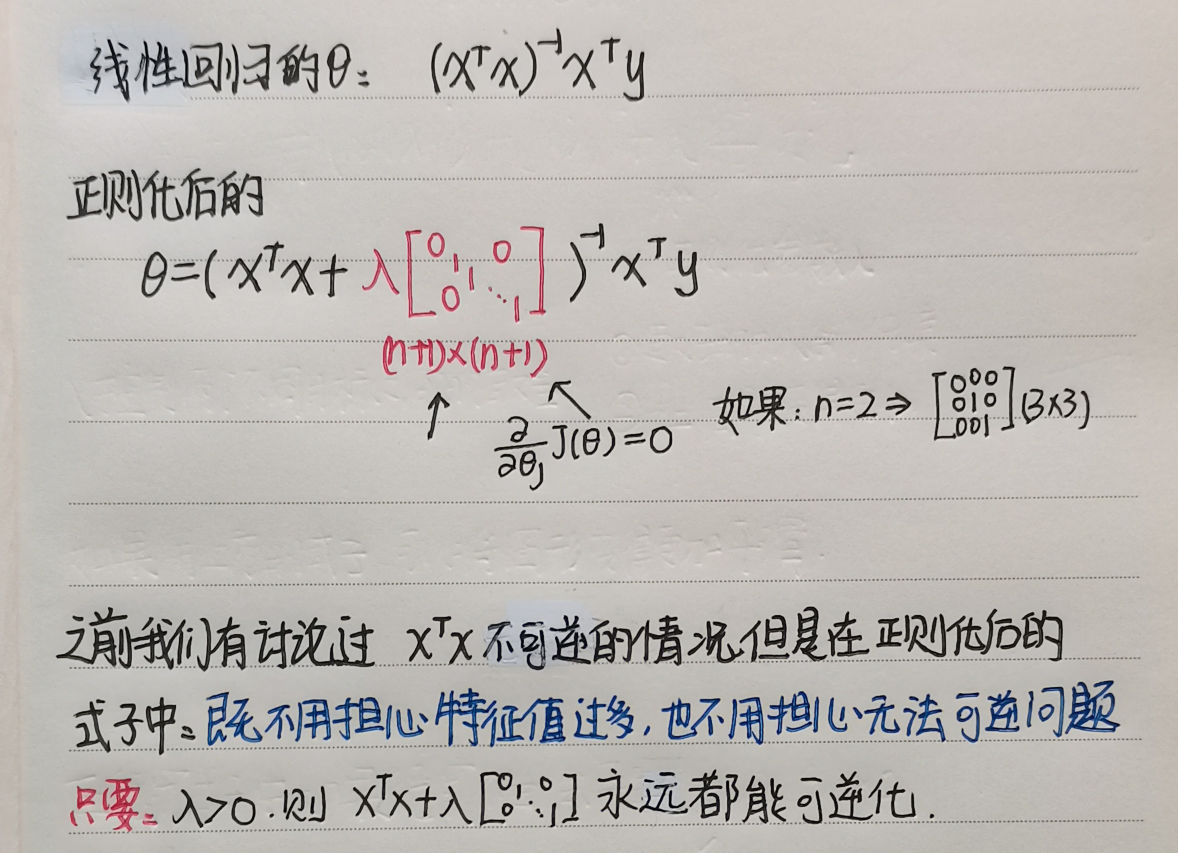 线性回归的θ: (xᵀx)⁻¹xᵀy
正则化后的
θ=(xᵀx+λ[0 1 1 ⋱ 1 0 0])⁻¹xᵀy
(n+1)×(n+1)
↑ ↖ ∂/∂θⱼ J(θ)=0
如果: n=2⇒ [000 010 001](3×3)
之前我们有讨论过 xᵀx 不可逆的情况,但是在正则化后的
式子中:既不用担心特征值过多,也不用担心无法可逆问题
只要:λ>0.则 xᵀx+λ[0 1 ⋱ 1 0 0] 永远都能可逆化.